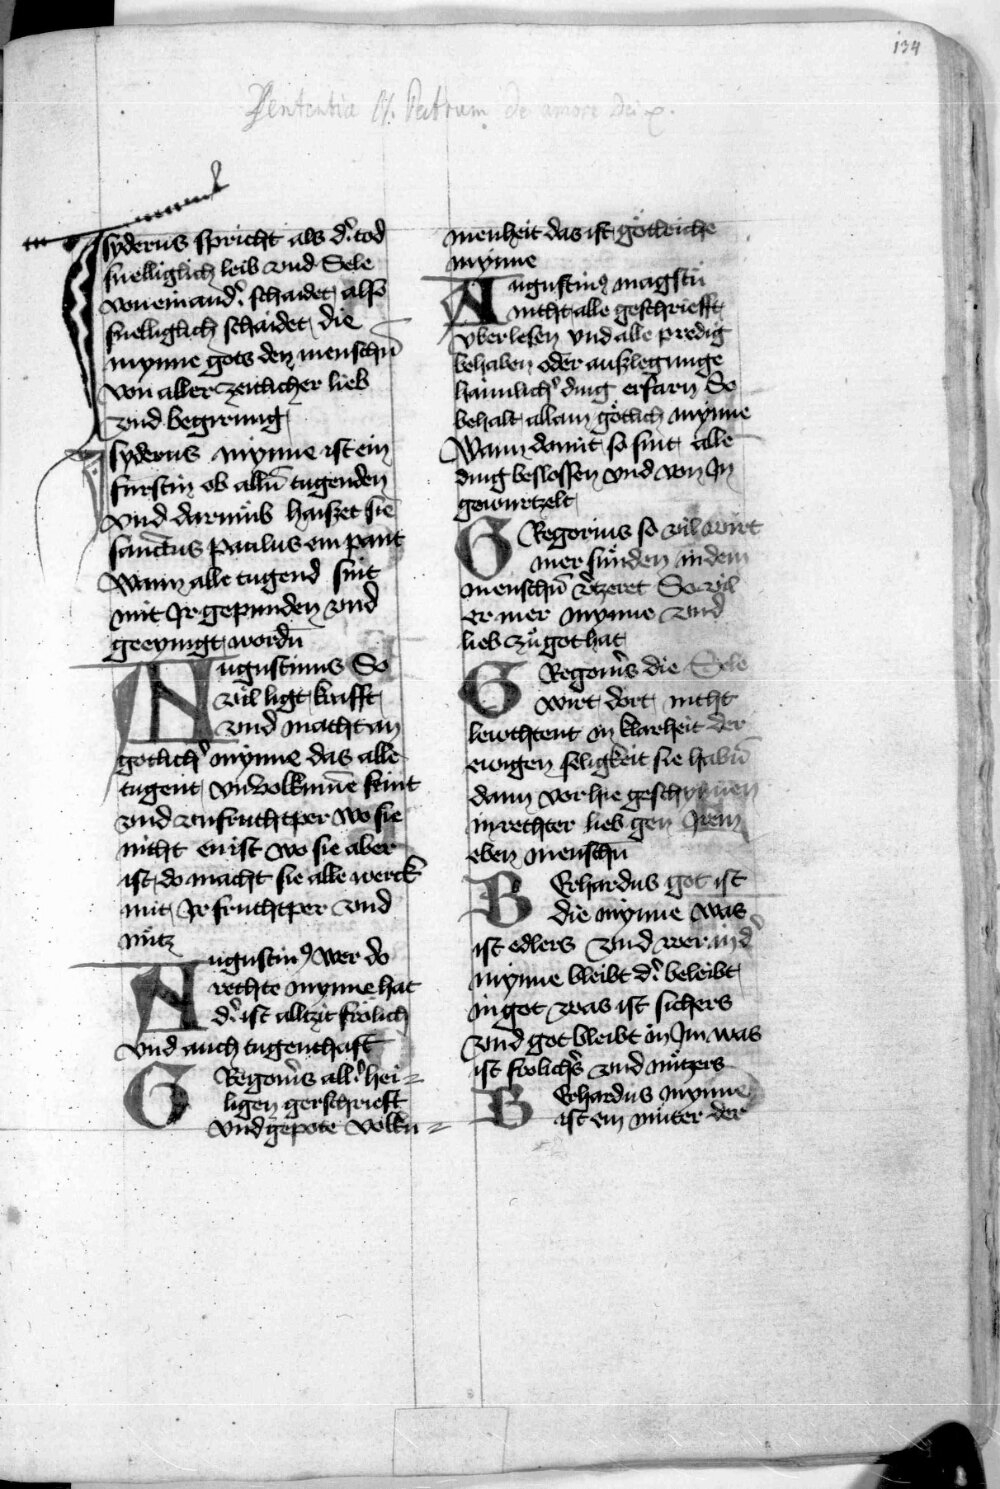 134
Sententia SS. Patrum de amore Dei
Isyderus spricht als d͛ tod
snelliglich leib vnd Sele
von einand͛ schaidet also
snelliglich schaidet die
mynne gots den menschn̄
von aller zeitlicher lieb
vnd begirung
Isyderus mynne ist ein
fürstin ob alln̄ tugenden
vnd darumb haiszet sie
sanctus Paulus ein pant
Wann alle tugend sint
mit Jr gepunden vnd
geeynigt wordn̄
Augustinus So
vil ligt krafft
vnd macht an
gotlich͛ mynne das alle
tugent vnuolkumē seint
vnd vnfruchtper wo sie
nicht enist wo sie aber
ist do macht sie alle werck
mit Jr fruchtper vnd
nütz
Augustin⁹ wer do
rechte mynne hat
d͛ ist allzit frölich
vnd auch tugenthaft
Gregori͛s all͛ hei=
ligen gerschrieft
vnd gepote volku=
menheit das ist götleiche
mynne
Augustin⁹ magstu
nicht alle geschriefft
vberlesen vnd alle predig
behaben oder auszlegunge
haimlich͛ ding erfarn So
behalt allain götlich mynne
Wann damit so sint alle
ding beslossen vnd von Jn
gewurtzelt
Gregorius so vil wirt
mer sünden in dem
menschn̄ v͛tzeret So vil
er mer mynne vnd
lieb zů got hat
Gregori͛s die Sele
wirt dort nicht
lewchtent in klarheit der
ewigen seligkeit sie habn̄
dann vor hie geschynnen
in rechter lieb gen Jrem
eben menschn
Berhardus got ist
die mynne was
ist edlers vnd wer in d͛
mynne bleibt d͛ beleibt
in got was ist sichers
vnd got bleibt in Jm was
ist frolich͛s vnd nützers
Berhardus mynne
ist ein muter der